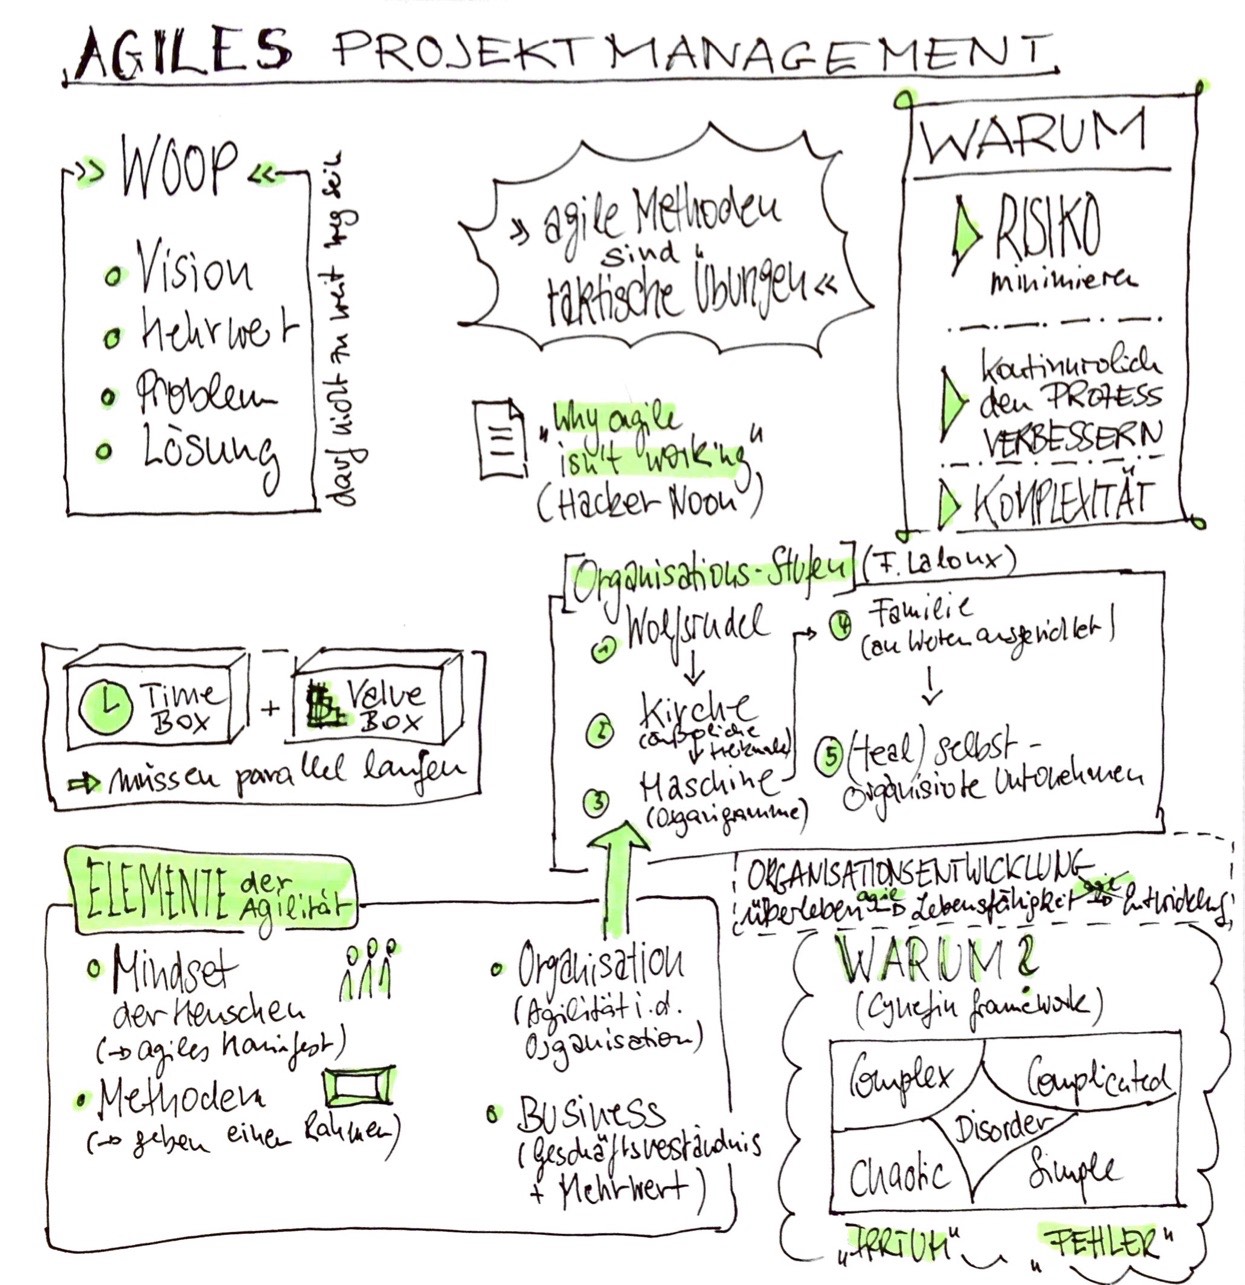 AGILES PROJEKTMANAGEMENT
>> WOOP <<
Vision
Mehrwert
Problem
Lösung
darf nicht zu weit weg sein
>> agile Methoden
sind
taktische Übungen <<
"Why agile
isn't working"
(Hacker Noon)
WARUM
RISIKO
minimieren
kontinuierlich
den PROZESS
VERBESSERN
KOMPLEXITÄT
[Organisations-Stufen] (F. Laloux)
1 Wolfsrudel
2 Kirche
3 Maschine
(Organigramme)
4 Familie
(an Werten ausgerichtet)
5 (teal) selbst-
organisierte Unternehmen
TIME
BOX
+
$ Value
BOX
⇒ müssen parallel laufen
ELEMENTE der
Agilität
Mindset
der Menschen
(→ agiles Manifest)
Methoden
(→ geben einen Rahmen)
Organisation
(Agilität i.d.
Organisation)
BUSINESS
(Geschäftsverständnis
+ Mehrwert)
ORGANISATIONSENTWICKLUNG
überleben agil → Lebensfähigkeit → Entwicklung
WARUM?
(Cynefin framework)
Complex
Complicated
Disorder
Chaotic
Simple
„IRRTUM"
„FEHLER"